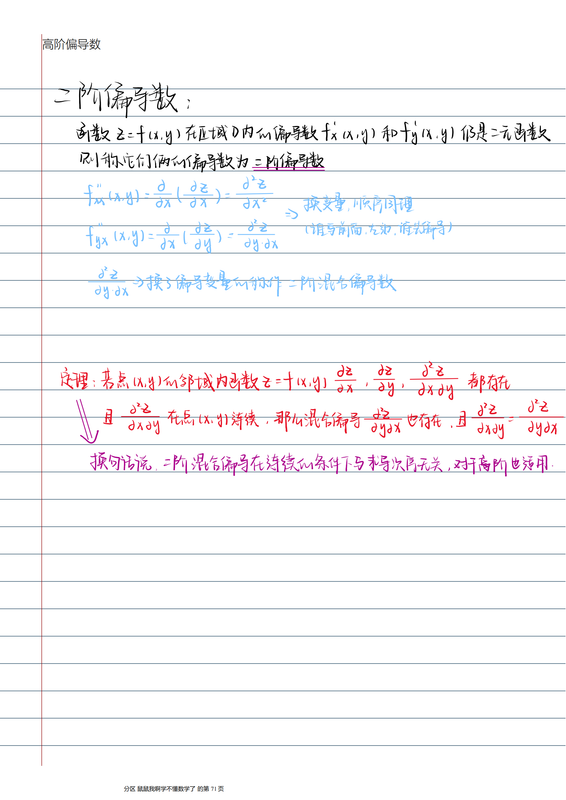 高阶偏导数
二阶偏导数：
函数 z=f(x,y) 在区域D内的偏导数 f'x(x,y) 和 f'y(x,y) 仍是二元函数
则称它们俩的偏导数为二阶偏导数
f''xx(x,y)=∂/∂x(∂z/∂x)=∂²z/∂x²
f''yx(x,y)=∂/∂x(∂z/∂y)=∂²z/∂y∂x
=> 换变量，顺序同理
(谁写前面、左边，谁先偏导)
∂²z/∂y·∂x → 换了偏导变量的称作 二阶混合偏导数
定理：若点(x,y)的邻域内函数z=f(x,y) ∂z/∂x , ∂z/∂y , ∂²z/∂x∂y 都存在
且 ∂²z/∂x∂y 在点(x,y)连续，那么混合偏导 ∂²z/∂y∂x 也存在，且 ∂²z/∂x∂y = ∂²z/∂y∂x
换句话说，二阶混合偏导在连续的条件下与求导次序无关，对于高阶也适用.
分区 鼠鼠我啊学不懂数学了 的第 71 页